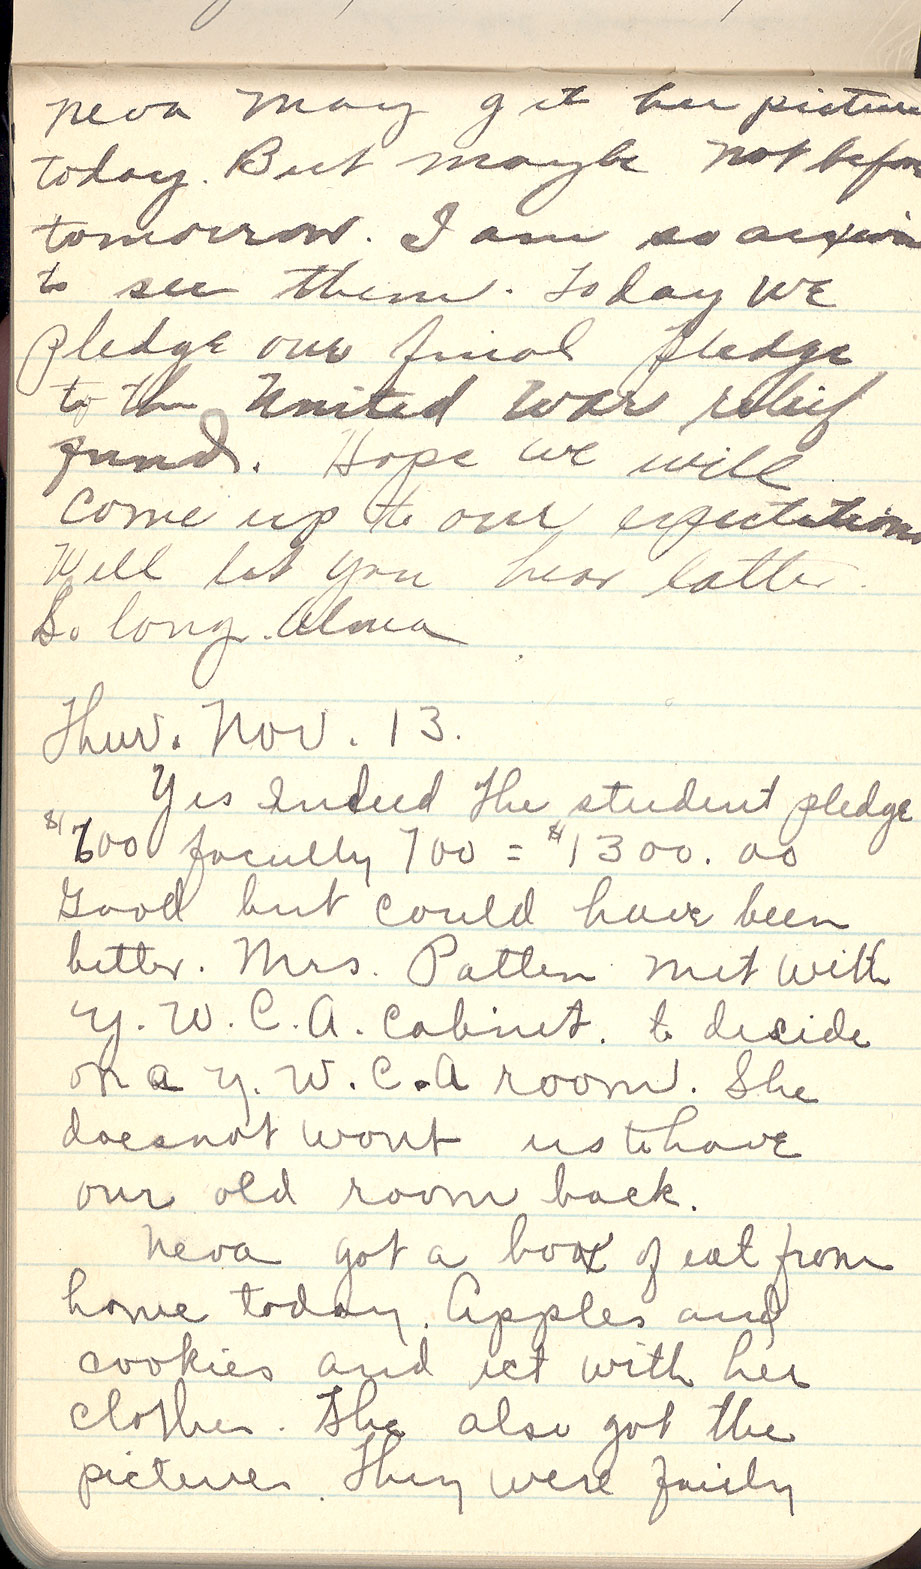 Neva may get her picture
today. But maybe not before
tomorrow. I am so anxious
to see them. Today we
pledge our final pledge
to the United War relief
fund. Hope we will
come up to our expectations
Will let you hear latter.
So long. Alma
Thur. Nov. 13.
Yes indeed the student pledge
$600 faculty 700 = $1300.00
Good but could have been
better. Mrs. Patten met with
Y.W.C.A. cabinet. to decide
on a Y.W.C.A room. She
does not wont us to have
our old room back.
Neva got a box of eat from
home today. Apples and
cookies and ect with her
clothes. She also got the
pictures. They were fairly